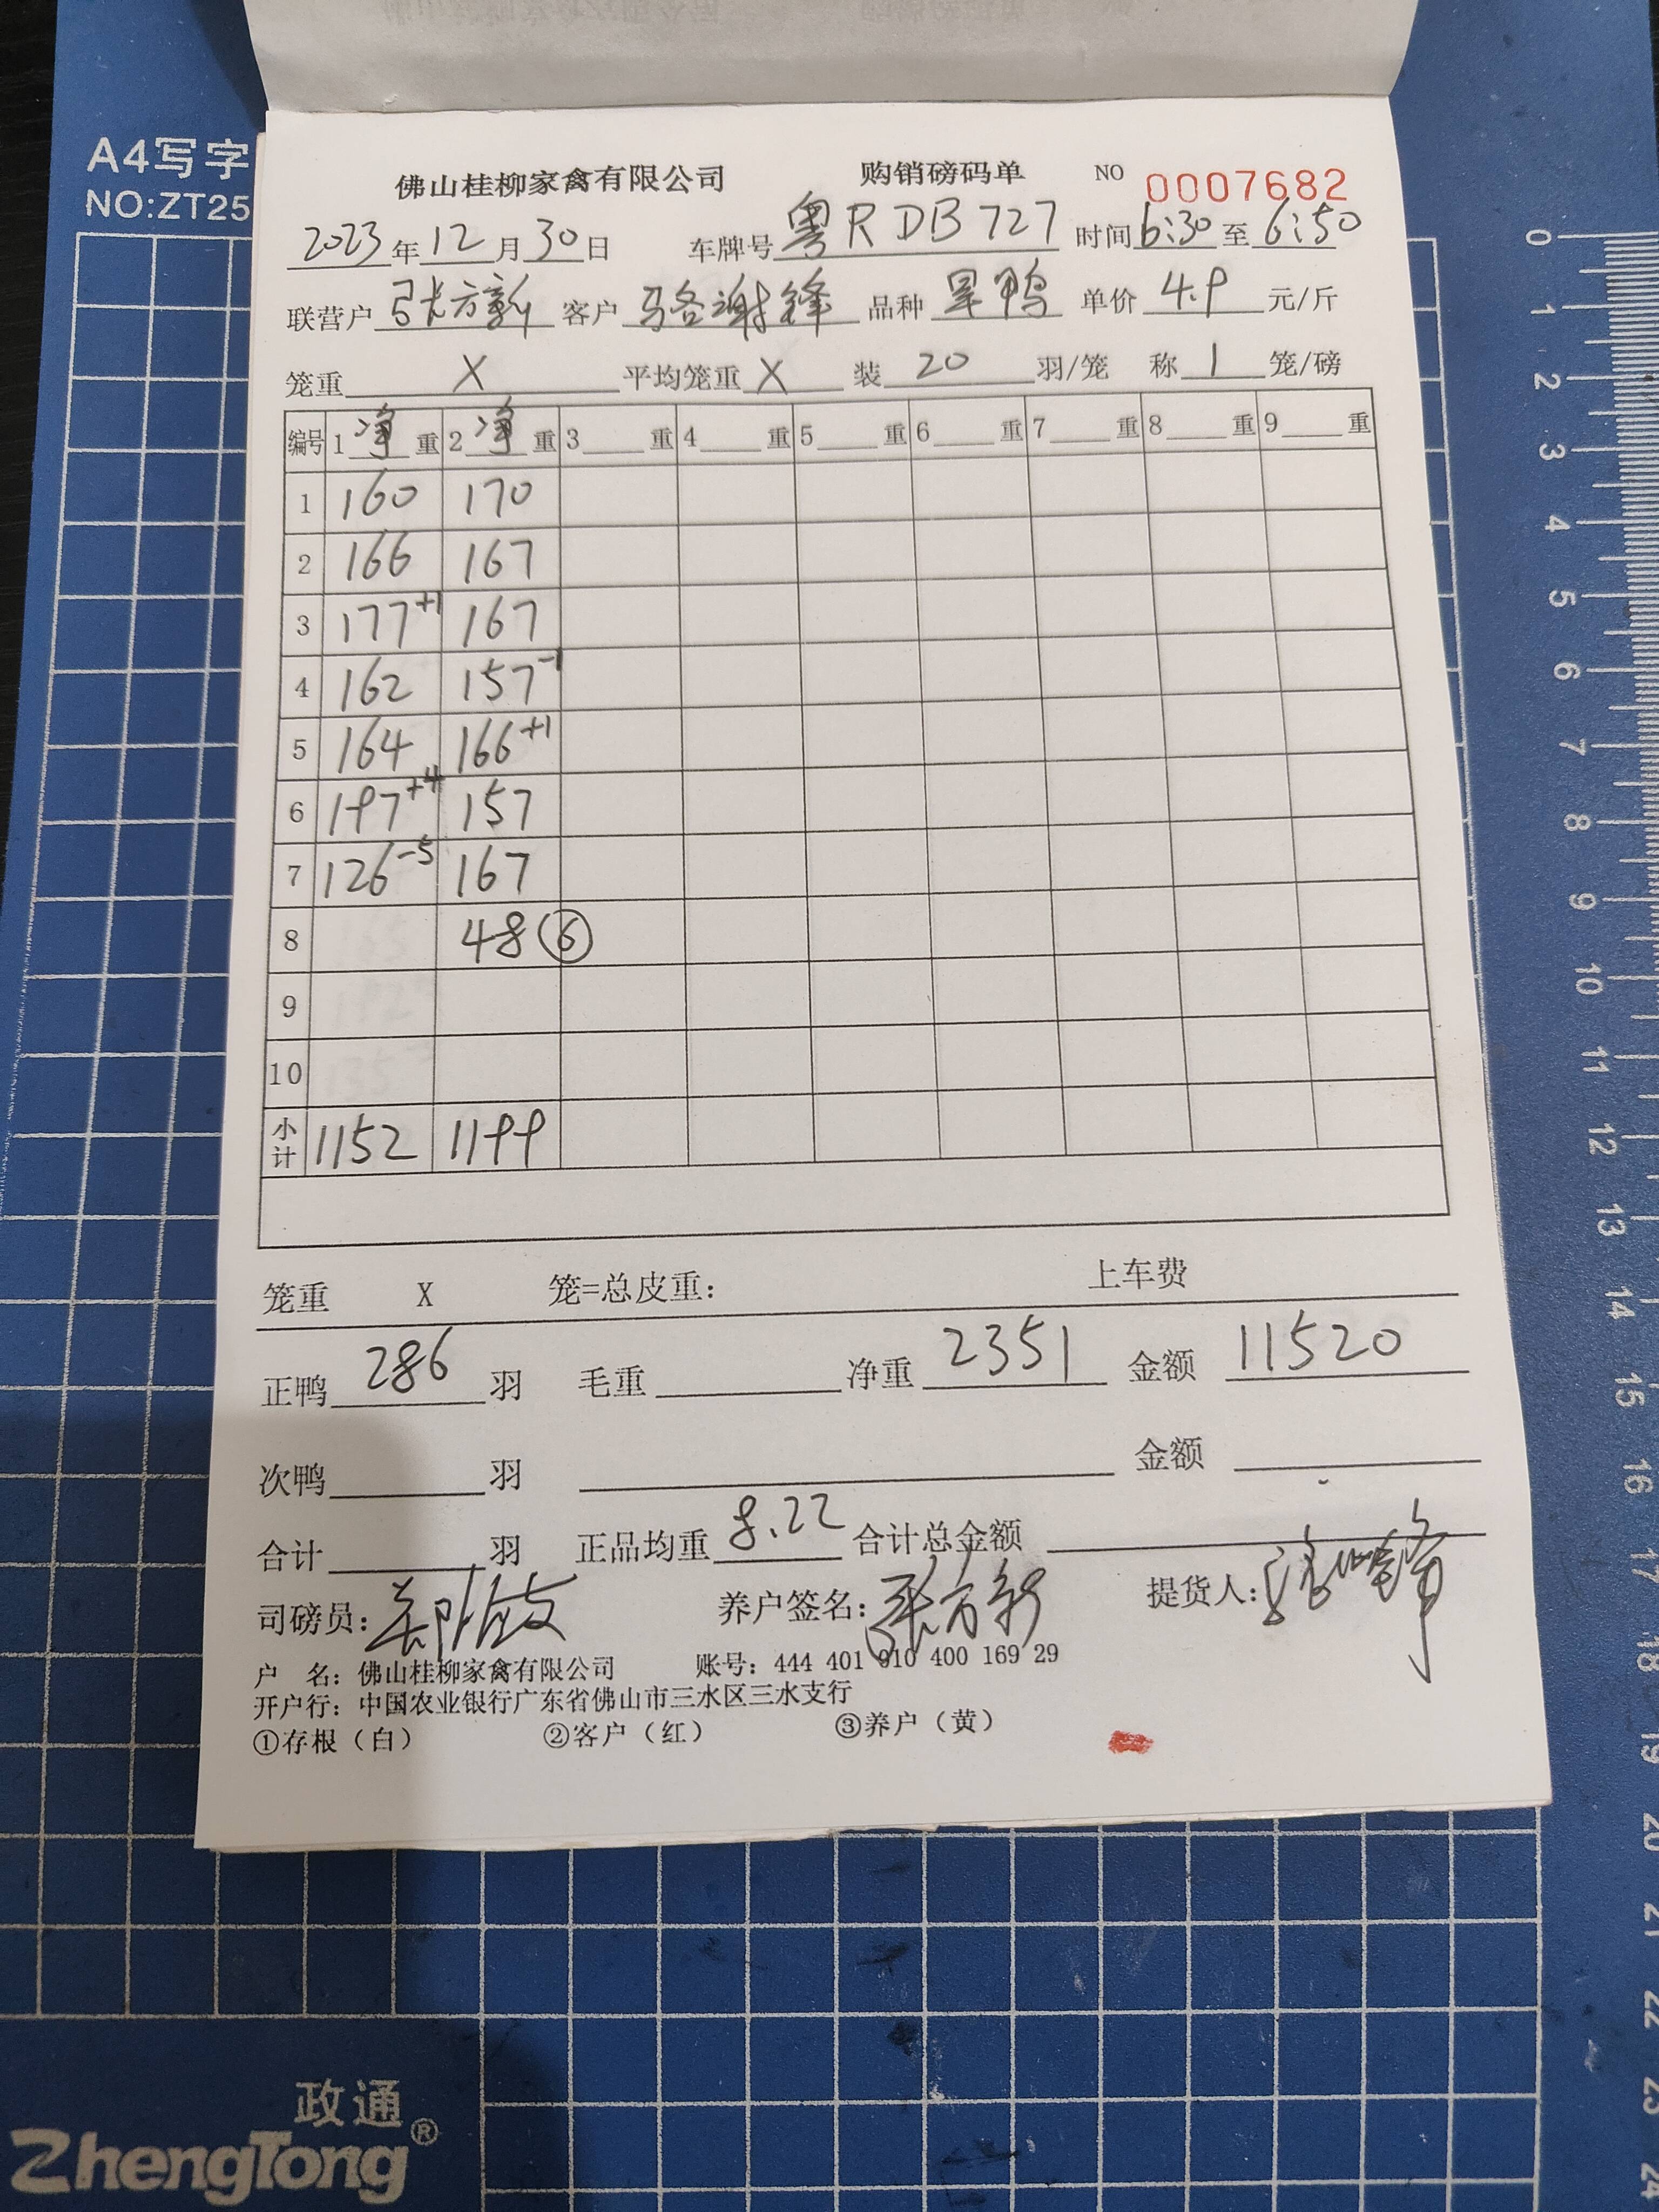 A4写字
NO:ZT25
佛山桂柳家禽有限公司 购销磅码单 NO 0007682
2023年12月30日 车牌号 粤RDB727 时间 6:30 至 6:50
联营户 张方新 客户 骆谢锋 品种 旱鸭 单价 4.9 元/斤
笼重 X 平均笼重 X 装 20 羽/笼 称 1 笼/磅
编号 1 净 重 2 净 重 3 重 4 重 5 重 6 重 7 重 8 重 9 重
1 160 170
2 166 167
3 177+1 167
4 162 157-1
5 164 166+1
6 197+4 157
7 126-5 167
8 48 ⑥
9
10
小计 1152 1199
笼重 X 笼=总皮重: 上车费
正鸭 286 羽 毛重 净重 2351 金额 11520
次鸭 羽 金额
合计 羽 正品均重 8.22 合计总金额
司磅员: 养户签名: 张方新 提货人:
户 名: 佛山桂柳家禽有限公司 账号: 444 401 010 400 169 29
开户行: 中国农业银行广东省佛山市三水区三水支行
①存根（白） ②客户（红） ③养户（黄）
政通
ZhengTong®
0
1
2
3
4
5
6
7
8
9
10
11
12
13
14
15
16
17
18
19
20
21
22
23
24